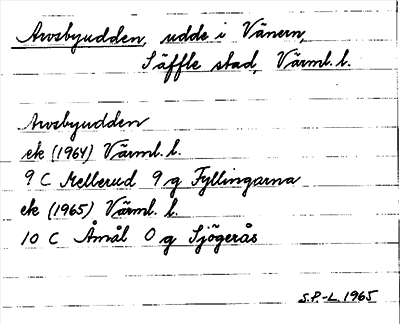 Avosbyudden, udde i Vänern,
Säffle stad, Värml. l.
Avosbyudden
ek (1964) Värml. l.
9 C Mellerud 9 g Fyllingarna
ek (1965) Värml. l.
10 C Åmål 0 g Sjögerås
S.P.-L. 1965